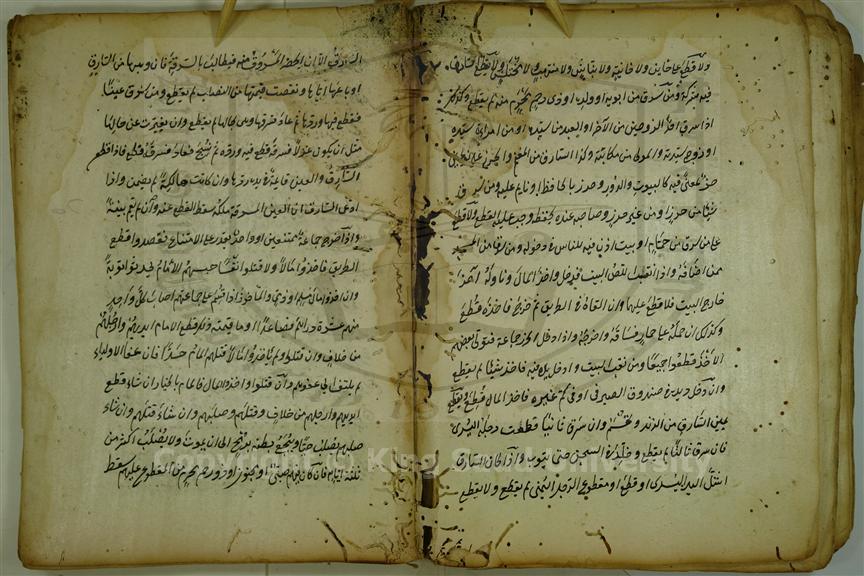 ولا قطع على خاين ولا خاينة ولا نباش ولا منتهب ولا مختلس ولا يقطع السارق
فيه شركة ومن سرق من ابويه او ولده او ذي رحم محرم منه لم يقطع وكذلك
اذا سرق احد الزوجين من الآخر او العبد من سيده او من امراة سيده
او زوج سيدته والمولى من مكاتبه وكذا السارق من المغنم والحرز على ضربين
حرز لمعنى فيه كالبيوت والدور وحرز بالحافظ ومن سرق
شيئا من حرز او من غير حرز وصاحبه عنده يحفظه وجب عليه القطع ولا قطع
على من سرق من حمام او بيت اذن فيه للناس في دخوله ومن سرق من المسجد
ممن اضافه واذا نقب اللص البيت فدخل واخذ المال وناوله آخر
خارج البيت فلا قطع عليهما وان القاه في الطريق ثم خرج فاخذه قطع
وكذلك ان حمله على حمار فساقه واخرجه واذا دخل الحرز جماعة فتولى بعضهم
الاخذ قطعوا جميعا ومن نقب البيت وادخل يده فيه فاخذ شيئا لم يقطع
وان ادخل يده في صندوق الصيرفي او في كم غيره فاخذ المال قطع ويقطع
يمين السارق من الزند وتحسم وان سرق ثانيا قطعت رجله اليسرى
فان سرق ثالثا لم يقطع وخلد في السجن حتى يتوب واذا كان السارق
اشل اليد اليسرى او اقطع او مقطوع الرجل اليمنى لم يقطع ولا يقطع
السارق الا ان يحضر المسروق منه فيطالب بالسرقة فان وهبها من السارق
او باعها اياها او نقصت قيمتها من النصاب لم يقطع ومن سرق عينا
فقطع فيها وردها ثم عاد فسرقها وهي بحالها لم يقطع وان تغيرت عن حالها
مثل ان يكون غزلا فسرقه فقطع فيه ورده ثم نسج فعاد فسرقه قطع فاذا قطع
السارق والعين قائمة في يده ردها وان كانت هالكة لم يضمن واذا
ادعى السارق ان العين المسروقة ملكه سقط القطع عنه وان لم يقم بينة
واذا خرج جماعة ممتنعين او واحد يقدر على الامتناع فقصدوا قطع
الطريق فاخذوا قبل ان ياخذوا مالا ولا قتلوا نفسا حبسهم الامام حتى يحدثوا توبة
وان اخذوا مال مسلم او ذمي والماخوذ اذا قسم على جماعتهم اصاب كل واحد
منهم عشرة دراهم فصاعدا او ما قيمته ذلك قطع الامام ايديهم وارجلهم
من خلاف وان قتلوا ولم ياخذوا مالا قتلهم الامام حدا فان عفا الاولياء
لم يلتفت الى عفوهم وان قتلوا واخذوا المال فالامام بالخيار ان شاء قطع
ايديهم وارجلهم من خلاف وقتلهم وصلبهم وان شاء قتلهم وان شاء
صلبهم يصلب حيا ويبعج بطنه برمح الى ان يموت ولا يصلب اكثر من
ثلثة ايام فان كان فيهم صبي او مجنون او ذو رحم محرم من المقطوع عليهم سقط
Copyright © King Saud University